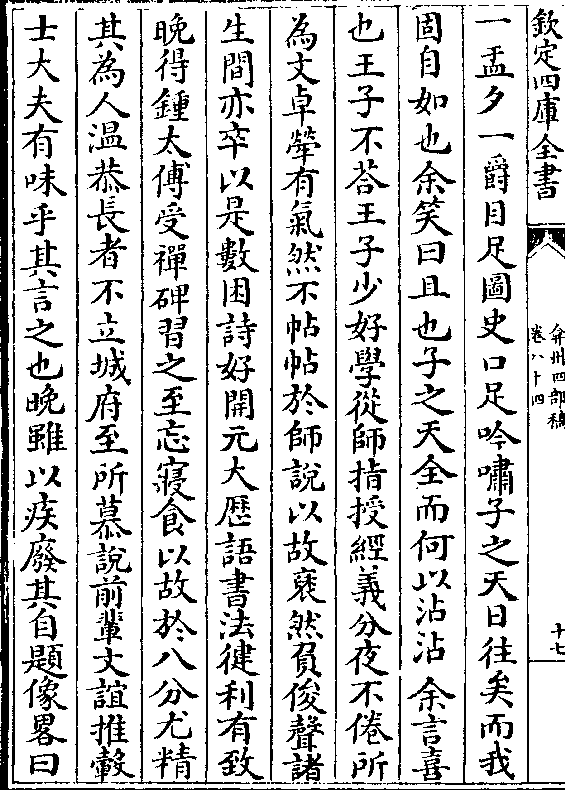 欽定四庫全書
弇州四部稿
卷八十四
十七
一盂夕一爵目足圖史口足吟嘯子之天日往矣而我
固自如也余笑曰且也子之天全而何以沾沾余言喜
也王子不荅王子少好學從師指授經義分夜不倦所
為文卓犖有氣然不帖帖於師說以故裒然負俊聲諸
生間亦卒以是數困詩好開元大歴語書法徤利有致
晚得鍾太傅受禪碑習之至忘寢食以故於八分尤精
其為人温恭長者不立城府至所慕說前輩文誼推轂
士大夫有味乎其言之也晚雖以疾廢其自題像畧曰